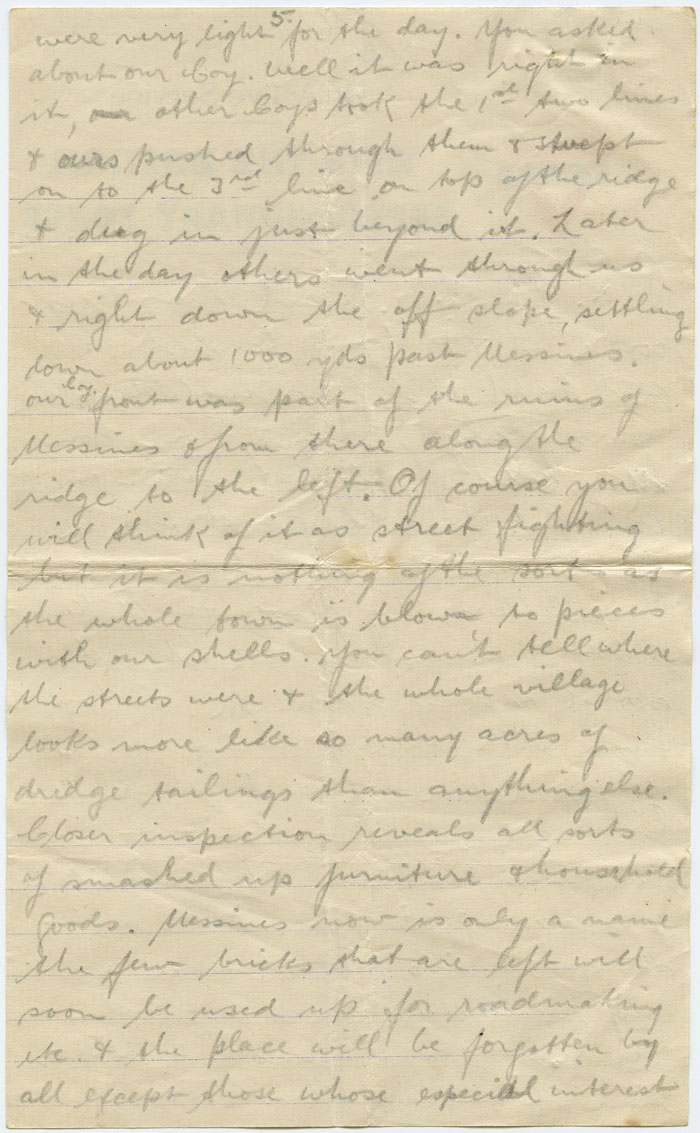 5.
were very light for the day. You asked
about our Coy. Well it was right in
it, our other Coys took the 1st two lines
& ours pushed through them & swept
on to the 3rd line on top of the ridge
& dug in just beyond it. Later
in the day others went through us
& right down the off slope, settling
down about 1000 yds past Messines.
our Coy. front was part of the ruins of
Messines & from there along the
ridge to the left. Of course you
will think of it as street fighting
but it is nothing of the sort as
the whole town is blown to pieces
with our shells. You can't tell where
the streets were & the whole village
looks more like so many acres of
dredge tailings than anything else.
Closer inspection reveals all sorts
of smashed up furniture & household
goods. Messines now is only a name
the few bricks that are left will
soon be used up for roadmaking
etc. & the place will be forgotten by
all except those whose especial interest